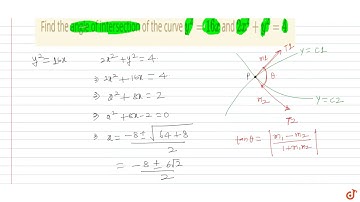 Find the angle of intersection of the curve y² = 16x and 2x² + y² = 4
y² = 16x 2x² + y² = 4
⇒ 2x² + 16x = 4
⇒ x² + 8x = 2
⇒ x² + 8x - 2 = 0
⇒ x = -8 ± √64+8 / 2
= -8 ± 6√2 / 2
m1 T1
y = C1
P θ
m2
y = C2
T2
tan θ = | m1 - m2 / 1 + m1 m2 |